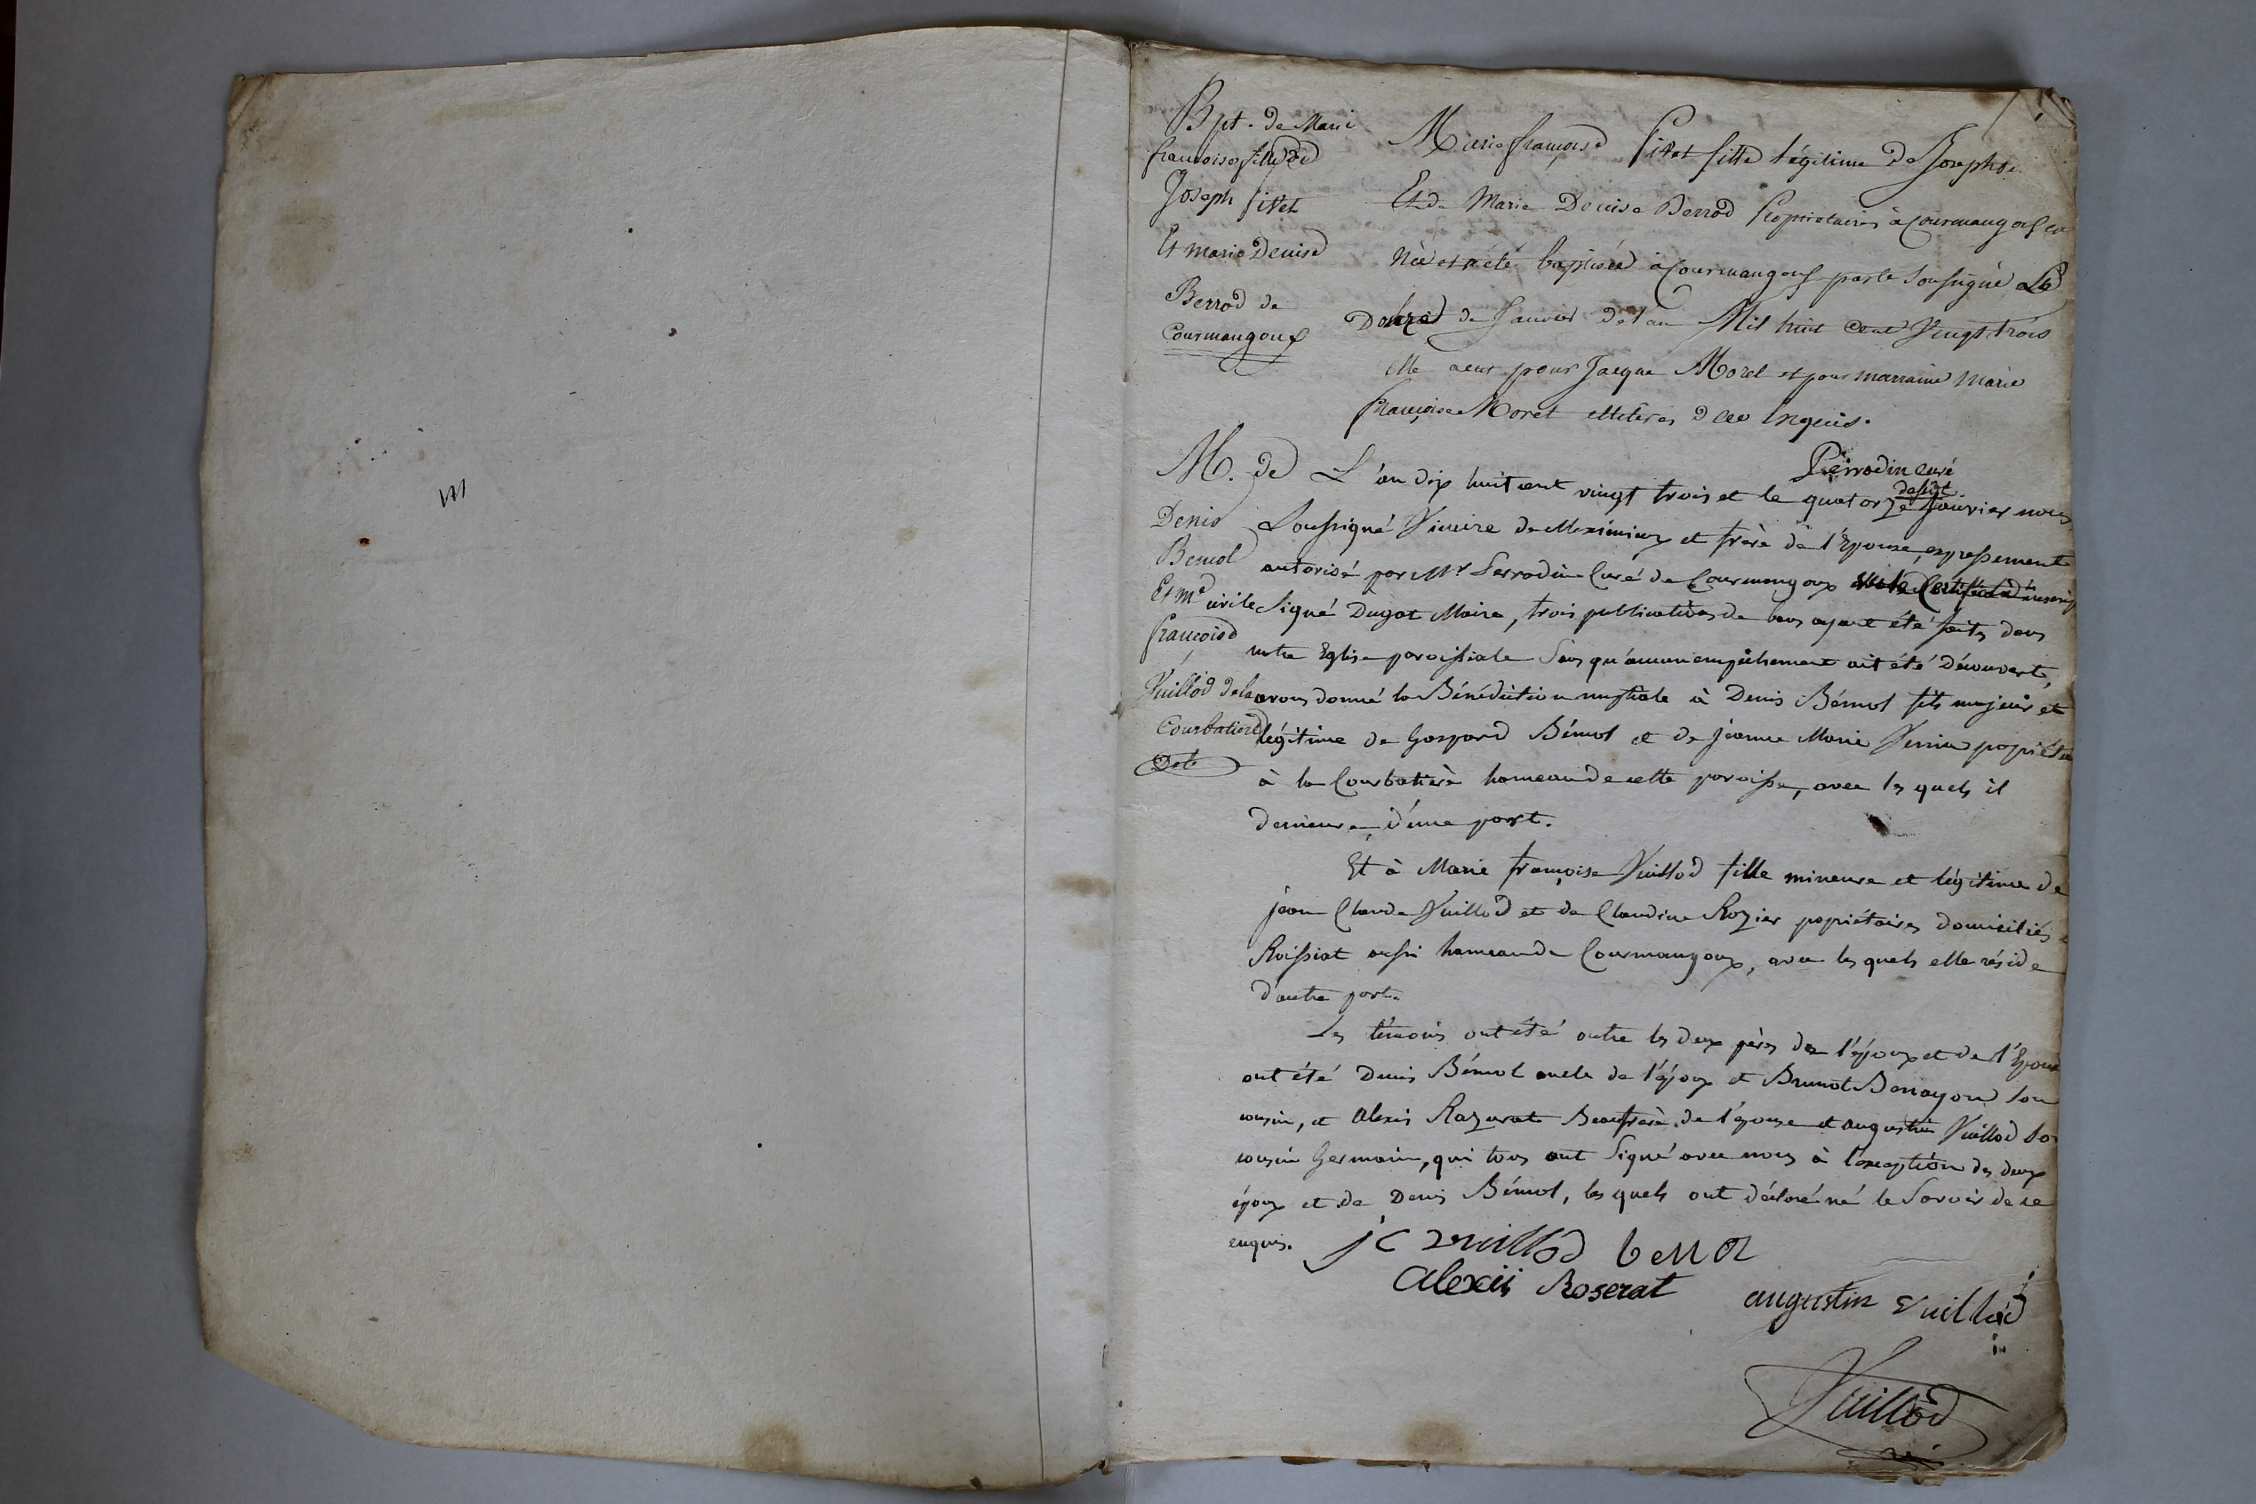 Bpt. de Marie
françoise fille de
Joseph Pitet
Et marie Denise
Berrod de
Courmangoux
Marie françoise Pitet fille légitime de Joseph
Et de Marie Denise Berrod Propriétaires à Courmangoux
Née et a été baptisée à Courmangoux par le Soussigné Le
Douze de Janvier de l'an Mil huit Cent Vingt trois
elle a eut pour Jacque Morel et pour marraine Marie
françoise Morel illitérés de ce Enquis.
Perrodin curé
desst.
M. de
Denis
Bémol
Et Md
françoise
Vuillod de la
Courbatiere
L'an dix huit cent vingt trois et le quatorze Janvier nous
Soussigné Vicaire de Meximieux et frère de l'Epouse, expressement
autorisé par Mr Perrodin Curé de Courmangoux
civile Signé Dugat Maire, trois publications de bans ayant été faites dans
notre Eglise paroissiale Sans qu'aucun empêchement ait été Découvert,
avons donné la Bénédiction nuptiale à Denis Bémol fils majeur et
légitime de Gaspard Bémol et de jeanne Marie
à la Courbatière hameau de cette paroisse, avec les quels il
demeure, d'une part.
Et à Marie françoise Vuillod fille mineure et légitime de
jean Claude Vuillod et de Claudine Rozier popriétaires domiciliés
Roissiat aussi hameau de Courmangoux, avec les quels elle réside
d'autre part.
Les témoins ont été outre les deux pères de l'époux et de l'Epouse
ont été Denis Bémol oncle de l'époux et Brunot son
cousin, et Alexis Razurat Beaufrère de l'épouse et augustin Vuillod So
cousin Germain, qui tous ont Signé avec nous à l'exception des deux
époux et de Denis Bémol, les quels ont déclaré né le Savoir de ce
enquis.
jc vuillod bemol
alexis Roserat
augustin vuillod
Vuillod